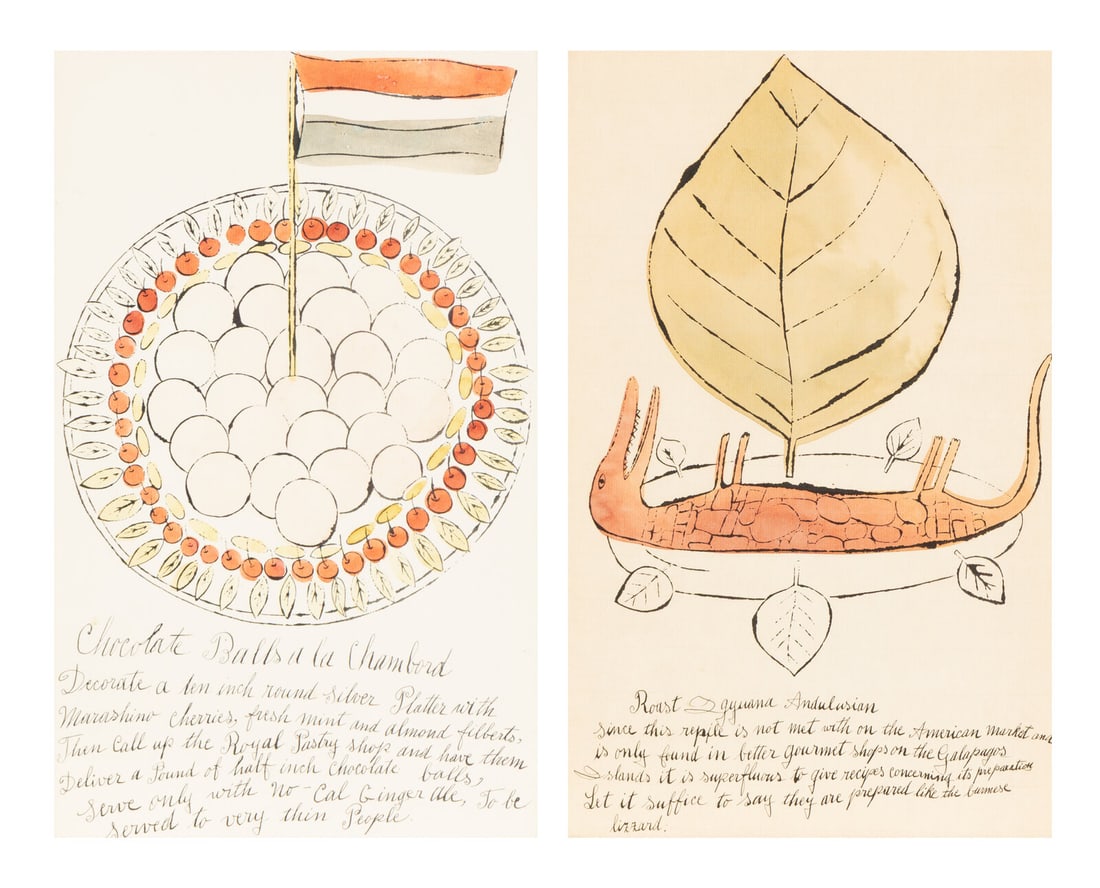 Chocolate Balls a la Chambord
Decorate a ten inch round silver Platter with
Marashino cherries, fresh mint and almond filberts,
Then Call up the Royal Pastry shop and have them
Deliver a Pound of half inch Chocolate balls,
Serve only with No-Cal Ginger ale, To be
served to very thin People.
Roast Igyuana Andulusian
Since this repile is not met with on the American market and
is only found in better gourmet shops on the Galapagos
Islands it is superfluous to give recipes concerning its preparation
Let it suffice to say they are prepared like the burmese
lizzard.